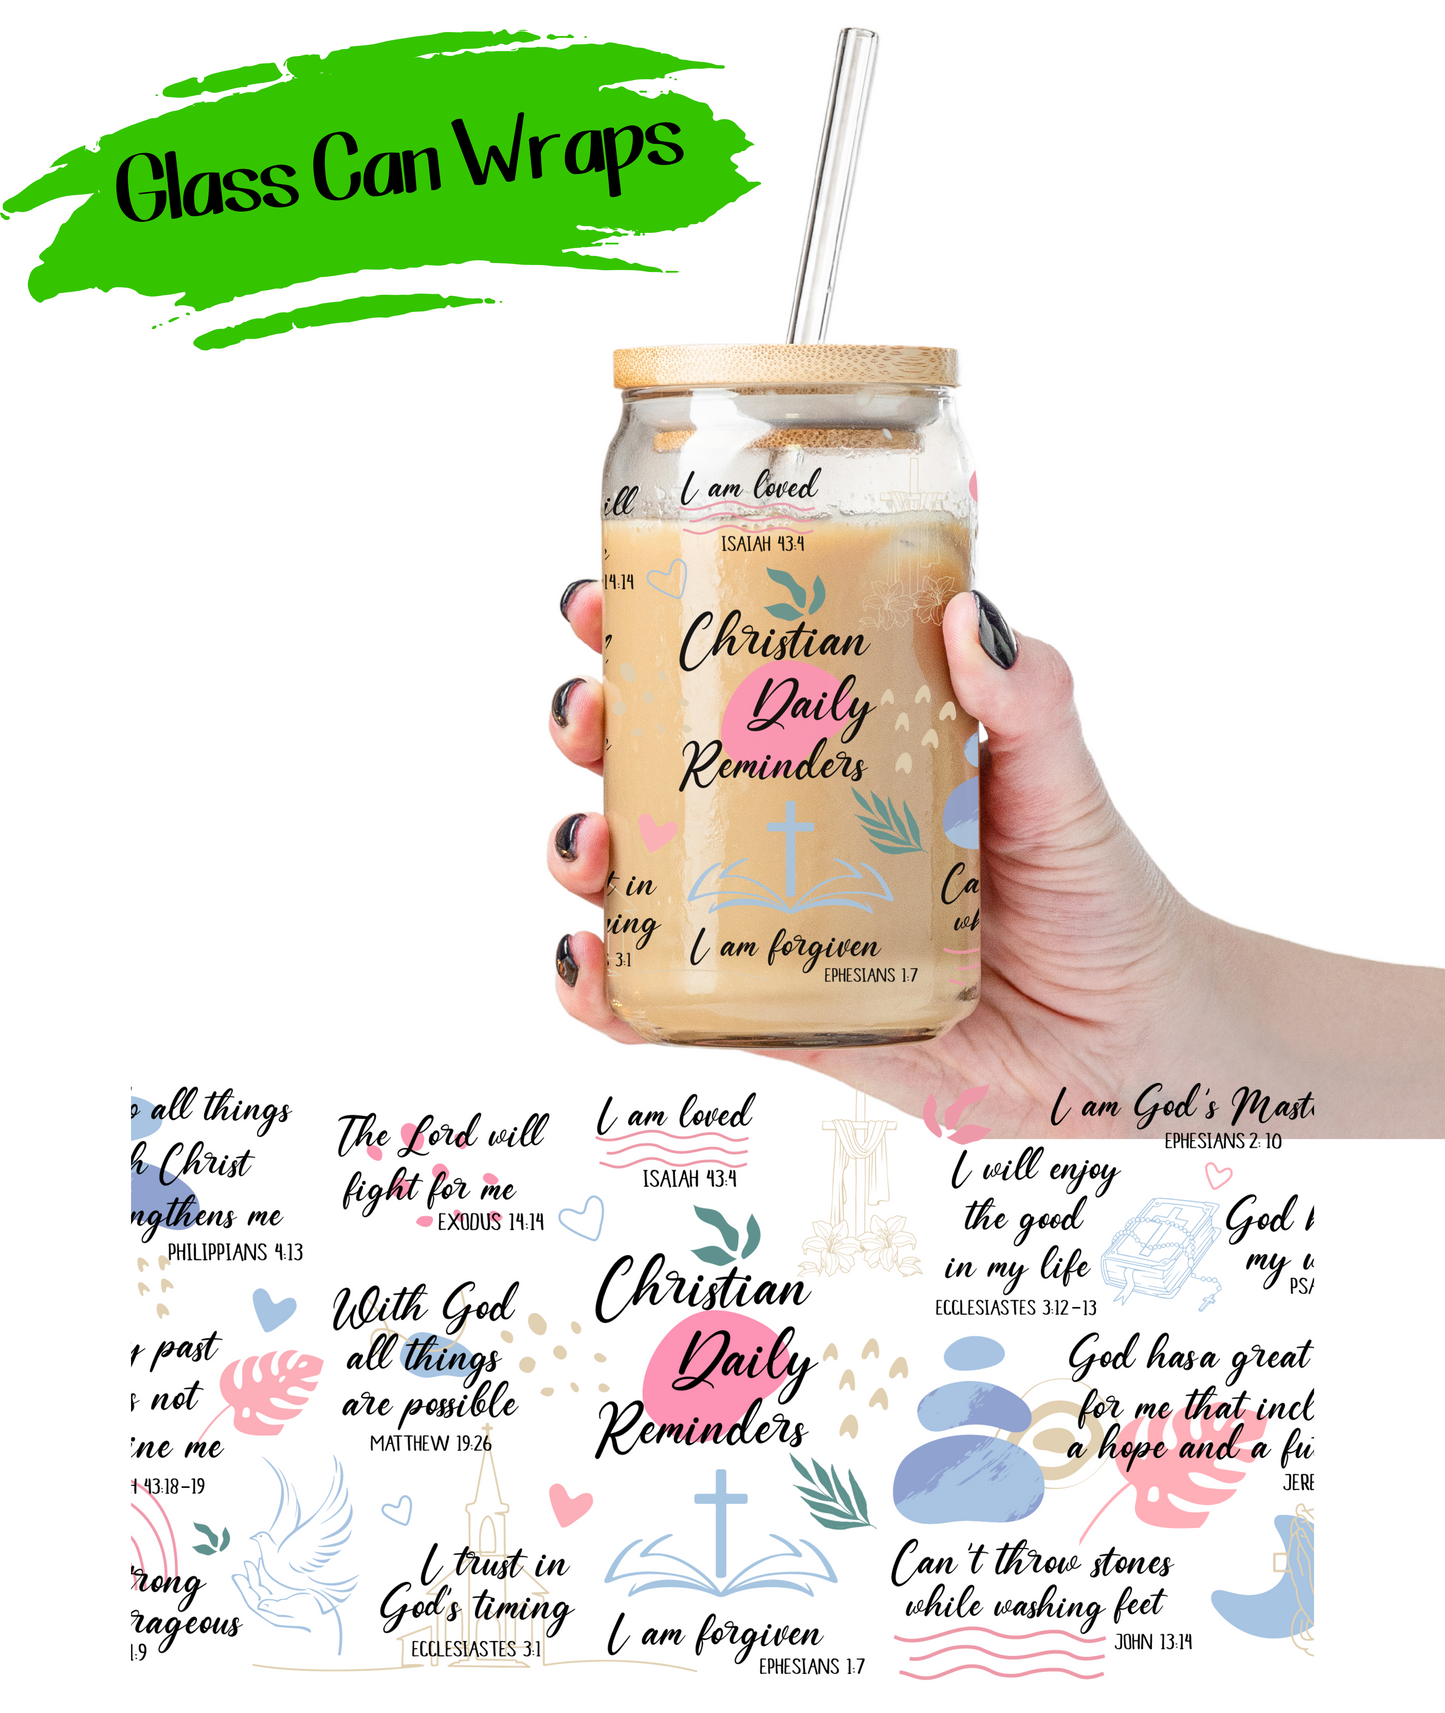 Glass Can Wraps
I am loved
ISAIAH 43:4
14:14
Christian
Daily
Reminders
in
I am forgiven
EPHESIANS 1:7
3:1
all things
Christ
me
PHILIPPIANS 4:13
The Lord will
fight for me
EXODUS 14:14
I am loved
ISAIAH 43:4
I am God's
EPHESIANS 2:10
I will enjoy
the good
in my life
ECCLESIASTES 3:12-13
God
my
With God
all things
are possible
MATTHEW 19:26
Christian
Daily
Reminders
past
not
me
43:18-19
God has a great
for me that
a hope and a
I trust in
God's timing
ECCLESIASTES 3:1
I am forgiven
EPHESIANS 1:7
Can't throw stones
while washing feet
JOHN 13:14